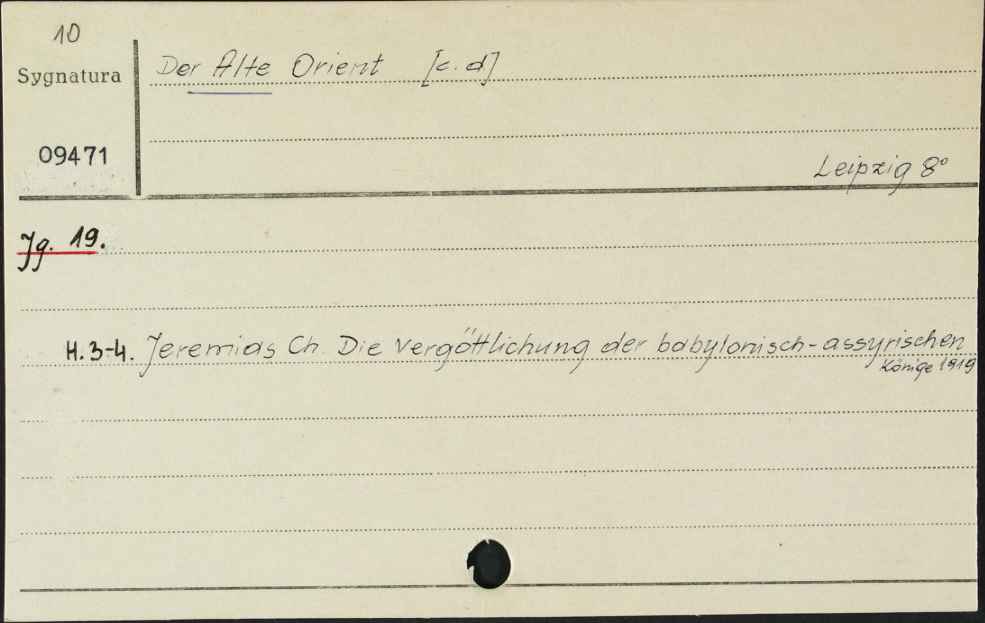 10
Sygnatura
Der Alte Orient [c.d]
09471
Leipzig 8°
Jg. 19.
H. 3-4. Jeremias Ch. Die Vergöttlichung der babylonisch-assyrischen
Könige 1919